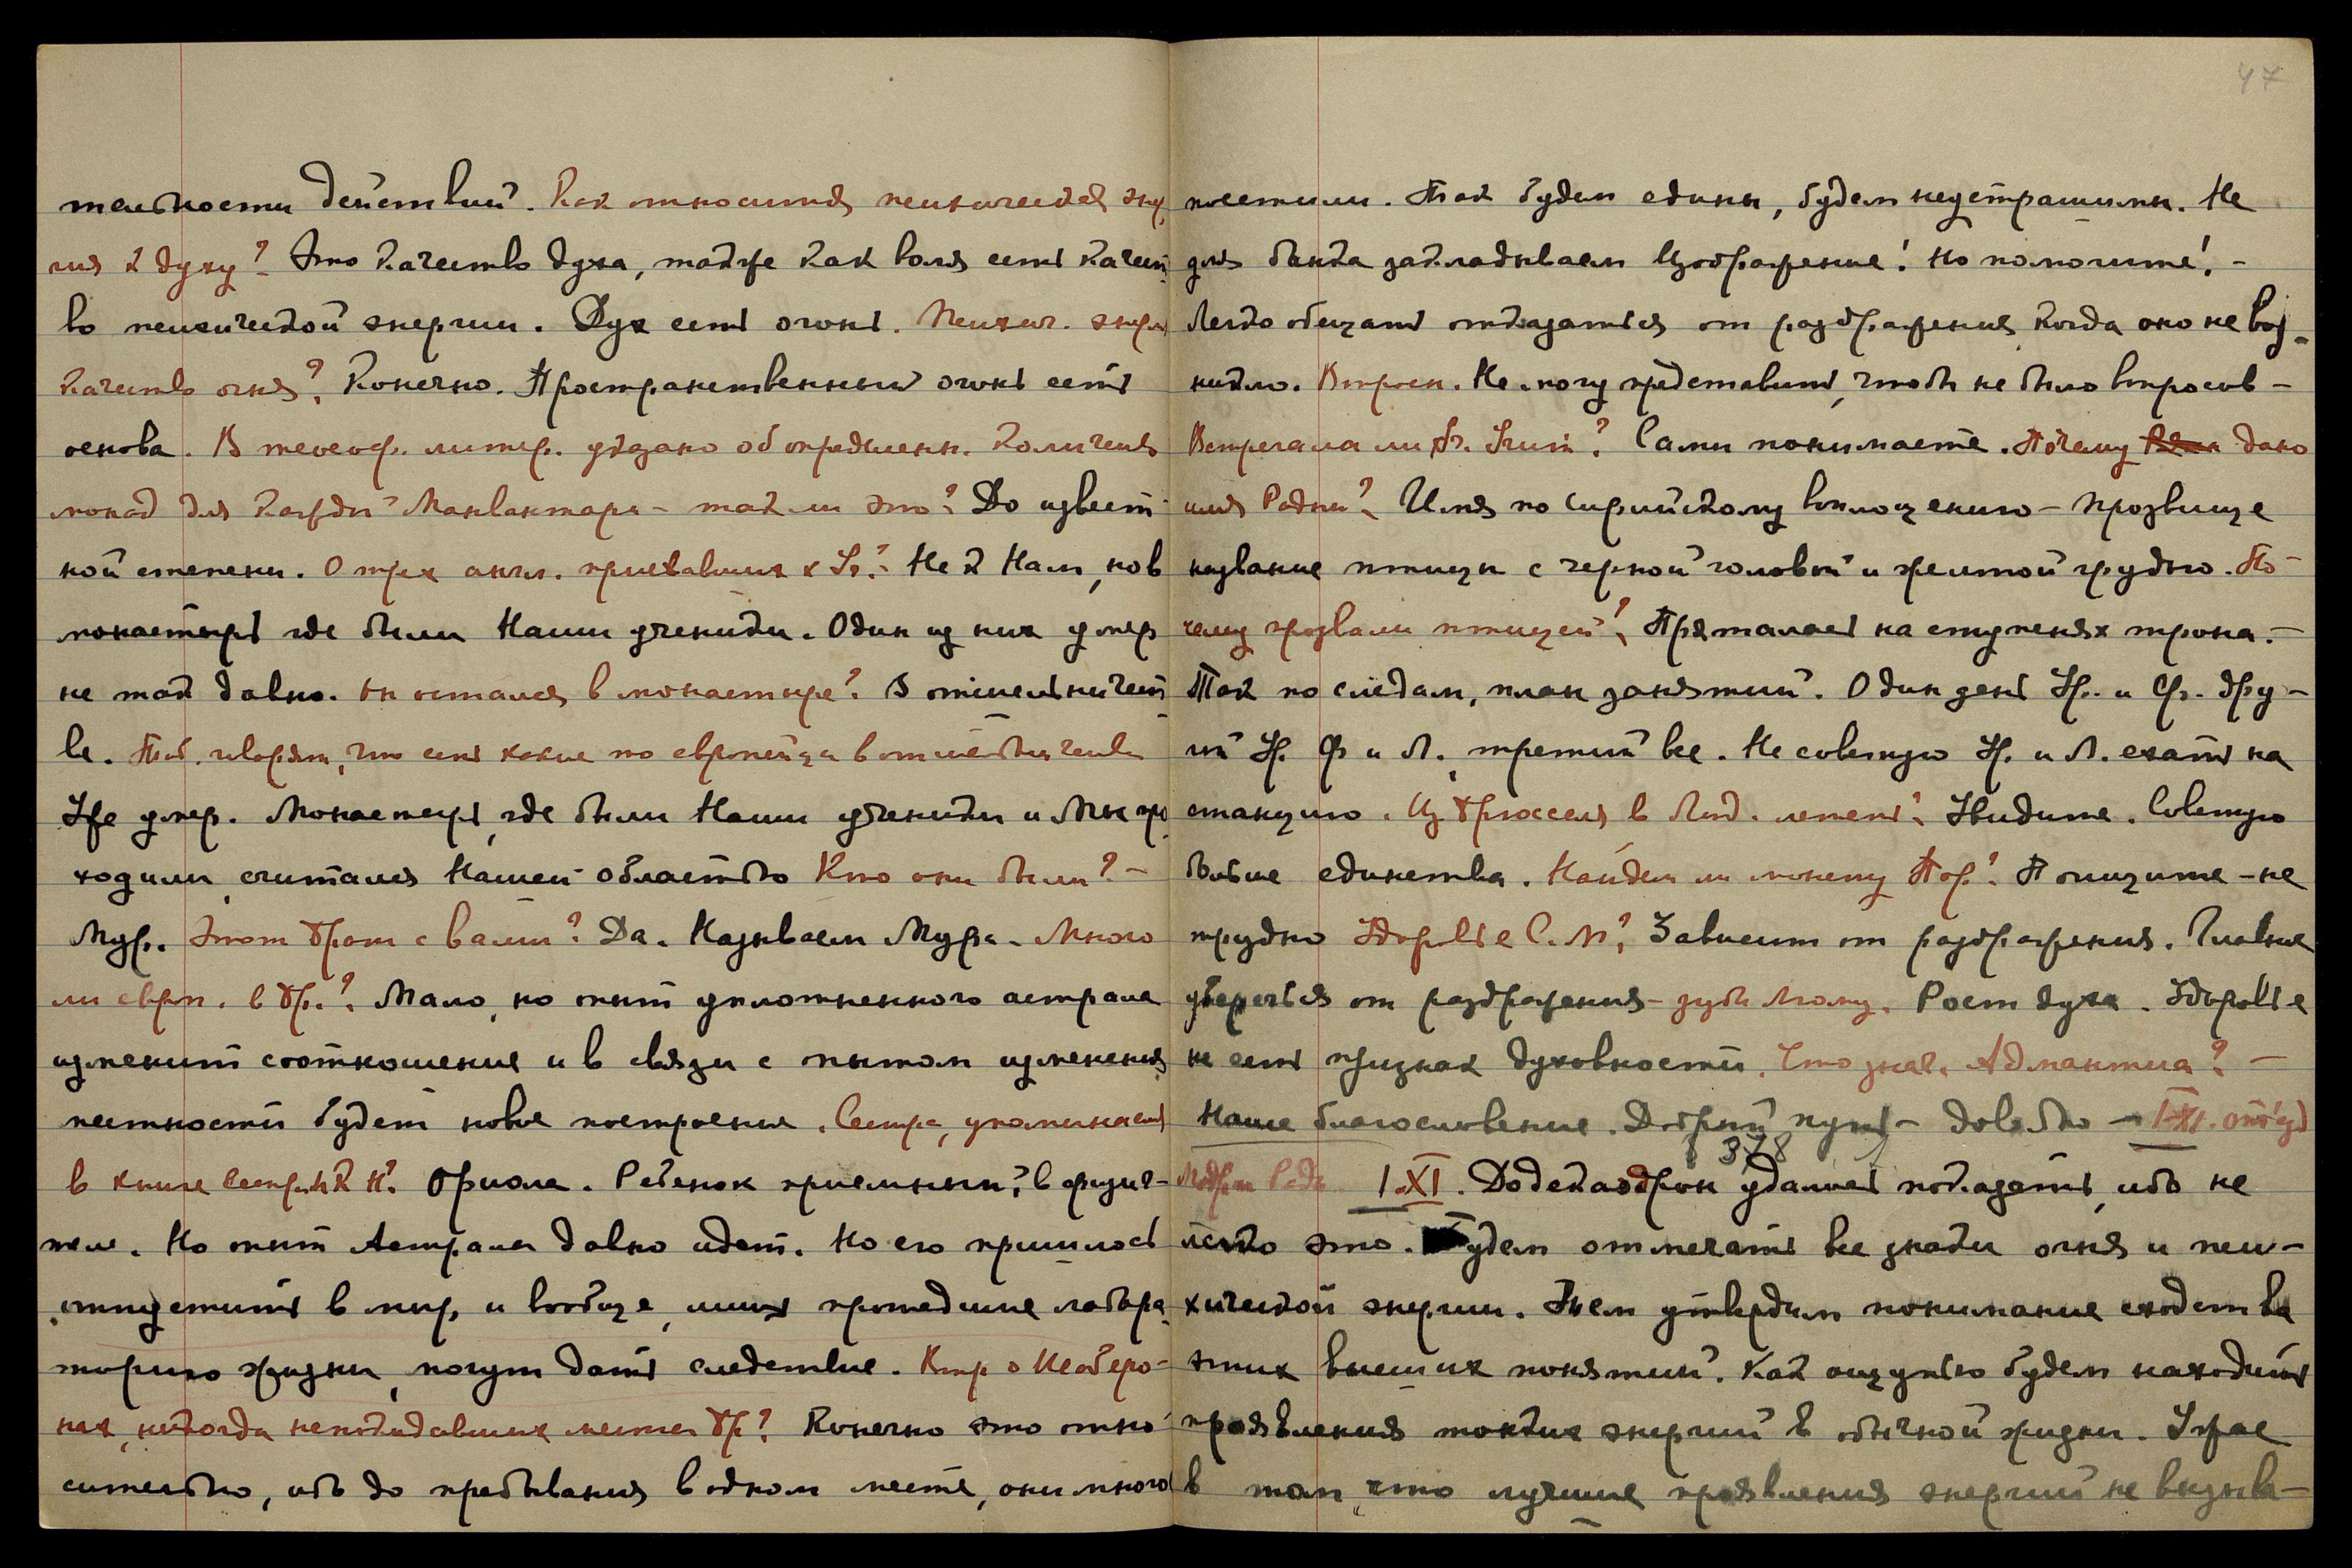 тельности действий. Как относится психическая энер
гия к духу? Это качество духа, также как воля есть качест
во психической энергии. Дух есть огонь. Психич. энергия
качество огня? Конечно. Пространственный огонь есть
основа. В теософ. литер. указано об определенн. количестве
монад для каждой Манвантары – так ли это? До извест
ной степени. О трех англ. приехавших к Бр.? Не к Нам, но в
монастырь где были Наши ученики. Один из них умер
не так давно. Он остался в монастыре? В отшельничест
ве. Тиб. говорят, что есть какие то европейцы в отшельничестве
Уже умер. Монастырь, где были Наши ученики и Мы при
ходили, считался Нашей областью Кто они были? –
Мур. Этот брат с вами? Да. Называем Мура. Много
ли европ. в Бр.? Мало, но опыт уплотненного астрала
изменит соотношение и в связи с опытом изменения
местности будет новое построение. Сестра, упоминается
в книге Ориола. Ребенок приемный? в физич.
теле. Но опыт Астрала давно идет. Но его пришлось
отпустить в мир, и вообще, лишь прошедшие лабора
торию жизни, могут дать следствие. Впр о Необеро-
нах, никогда не покидавших места Бр? Конечно это отно
сительно, ибо до пребывания в одном месте, они много
47
посетили. Так будем едины, будем неустрашимы. Не
для банка закладываем Изображение! Но помогите! –
Легко обещать отказаться от раздражения когда оно не воз-
никло. Вопросы. Не могу представить, чтобы не было вопросов –
Встречала ли Бр. Сами понимаете. Почему дано
имя Радны? Имя по Сирийскому воплощению – прозвище
название птицы с черной головой и желтой грудью. По-
чему прозвали птицей? Пряталась на ступенях трона. –
Так по следам, план занятий. Один день Ур. и Ф. дру-
гой Ур. Ф и Л., третий все. Не советую Ур. и Л. ехать на
станцию. Из Брюсселя в Лонд. лететь? Увидите. Советую
больше единства. Найдем ли монету Пор? Поищите – не
трудно Здоровье С. М? Зависит от раздражения. Главное
уберечься от раздражения – зубы Рост духа. Здоровье
не есть признак духовности. Что знач. Адамантиа? –
Наше благословение. Добрый путь – довольно – I–XI. отъезд
378
I.XI. Додекаэдрон удалось показать, ибо не
легко это. Будем отмечать все знаки огня и пси-
хической энергии. Этим утвердим понимание сходства
этих высших понятий. Как ощутимо будем находить
проявления тонких энергий в обычной жизни. Ужас
в том, что лучшие проявления энергий не вызыва-